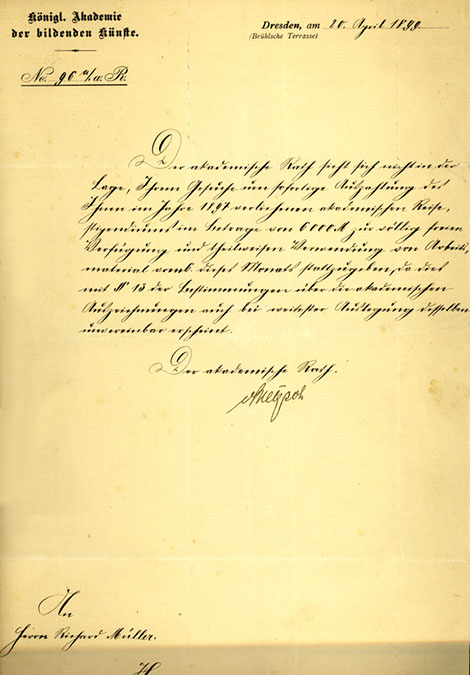 Königl. Akademie
der bildenden Künste.
Dresden, am 20. April 1899
(Brühlsche Terrasse)
No. 96 a/a. R.
Der akademische Rath sieht sich nicht in der
Lage, Ihrem Gesuche um sofortige Auszahlung des
Ihnen im Jahre 1897 verliehenen akademischen Reise,
stipendiums im Betrage von 6000 M zur völlig freien
Verfügung und theilweisen Verwendung von Arbeits,
material vom 6. dieses Monats stattzugeben, da dies
mit § 13 der Bestimmungen über die akademischen
Auszeichnungen auch bei weitester Auslegung desselben
unvereinbar erscheint.
Der akademische Rath.
An
Herrn Richard Müller.
H